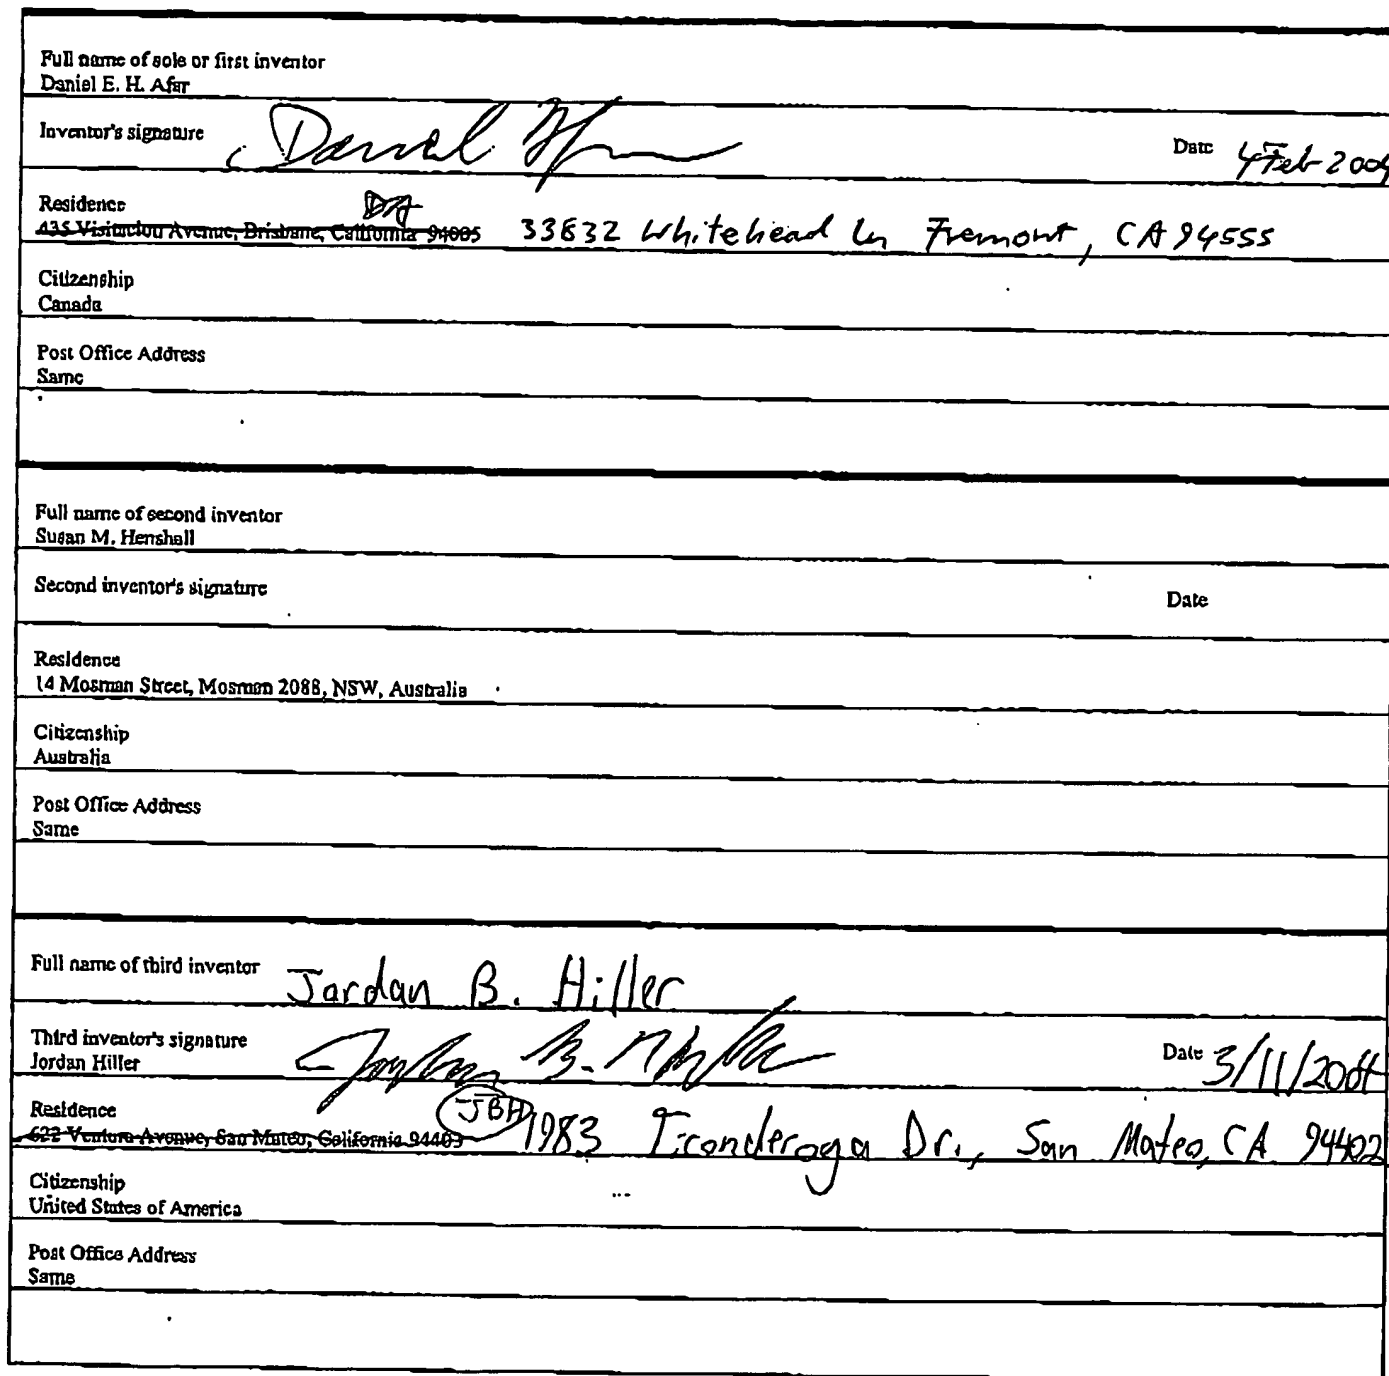 Full name of sole or first inventor
Daniel E. H. Afar
Inventor's signature Daniel Afar Date 4 Feb 2004
Residence DA
435 Visitacion Avenue, Brisbane, California 94005 33832 Whitehead Ln Fremont, CA 94555
Citizenship
Canada
Post Office Address
Same
Full name of second inventor
Susan M. Henshall
Second inventor's signature Date
Residence
14 Mosman Street, Mosman 2088, NSW, Australia
Citizenship
Australia
Post Office Address
Same
Full name of third inventor Jordan B. Hiller
Third inventor's signature
Jordan Hiller Jordan B. Hiller Date 3/11/2004
Residence JBH
622 Ventura Avenue, San Mateo, California 94403 1983 Ticonderoga Dr., San Mateo, CA 94402
Citizenship
United States of America
Post Office Address
Same